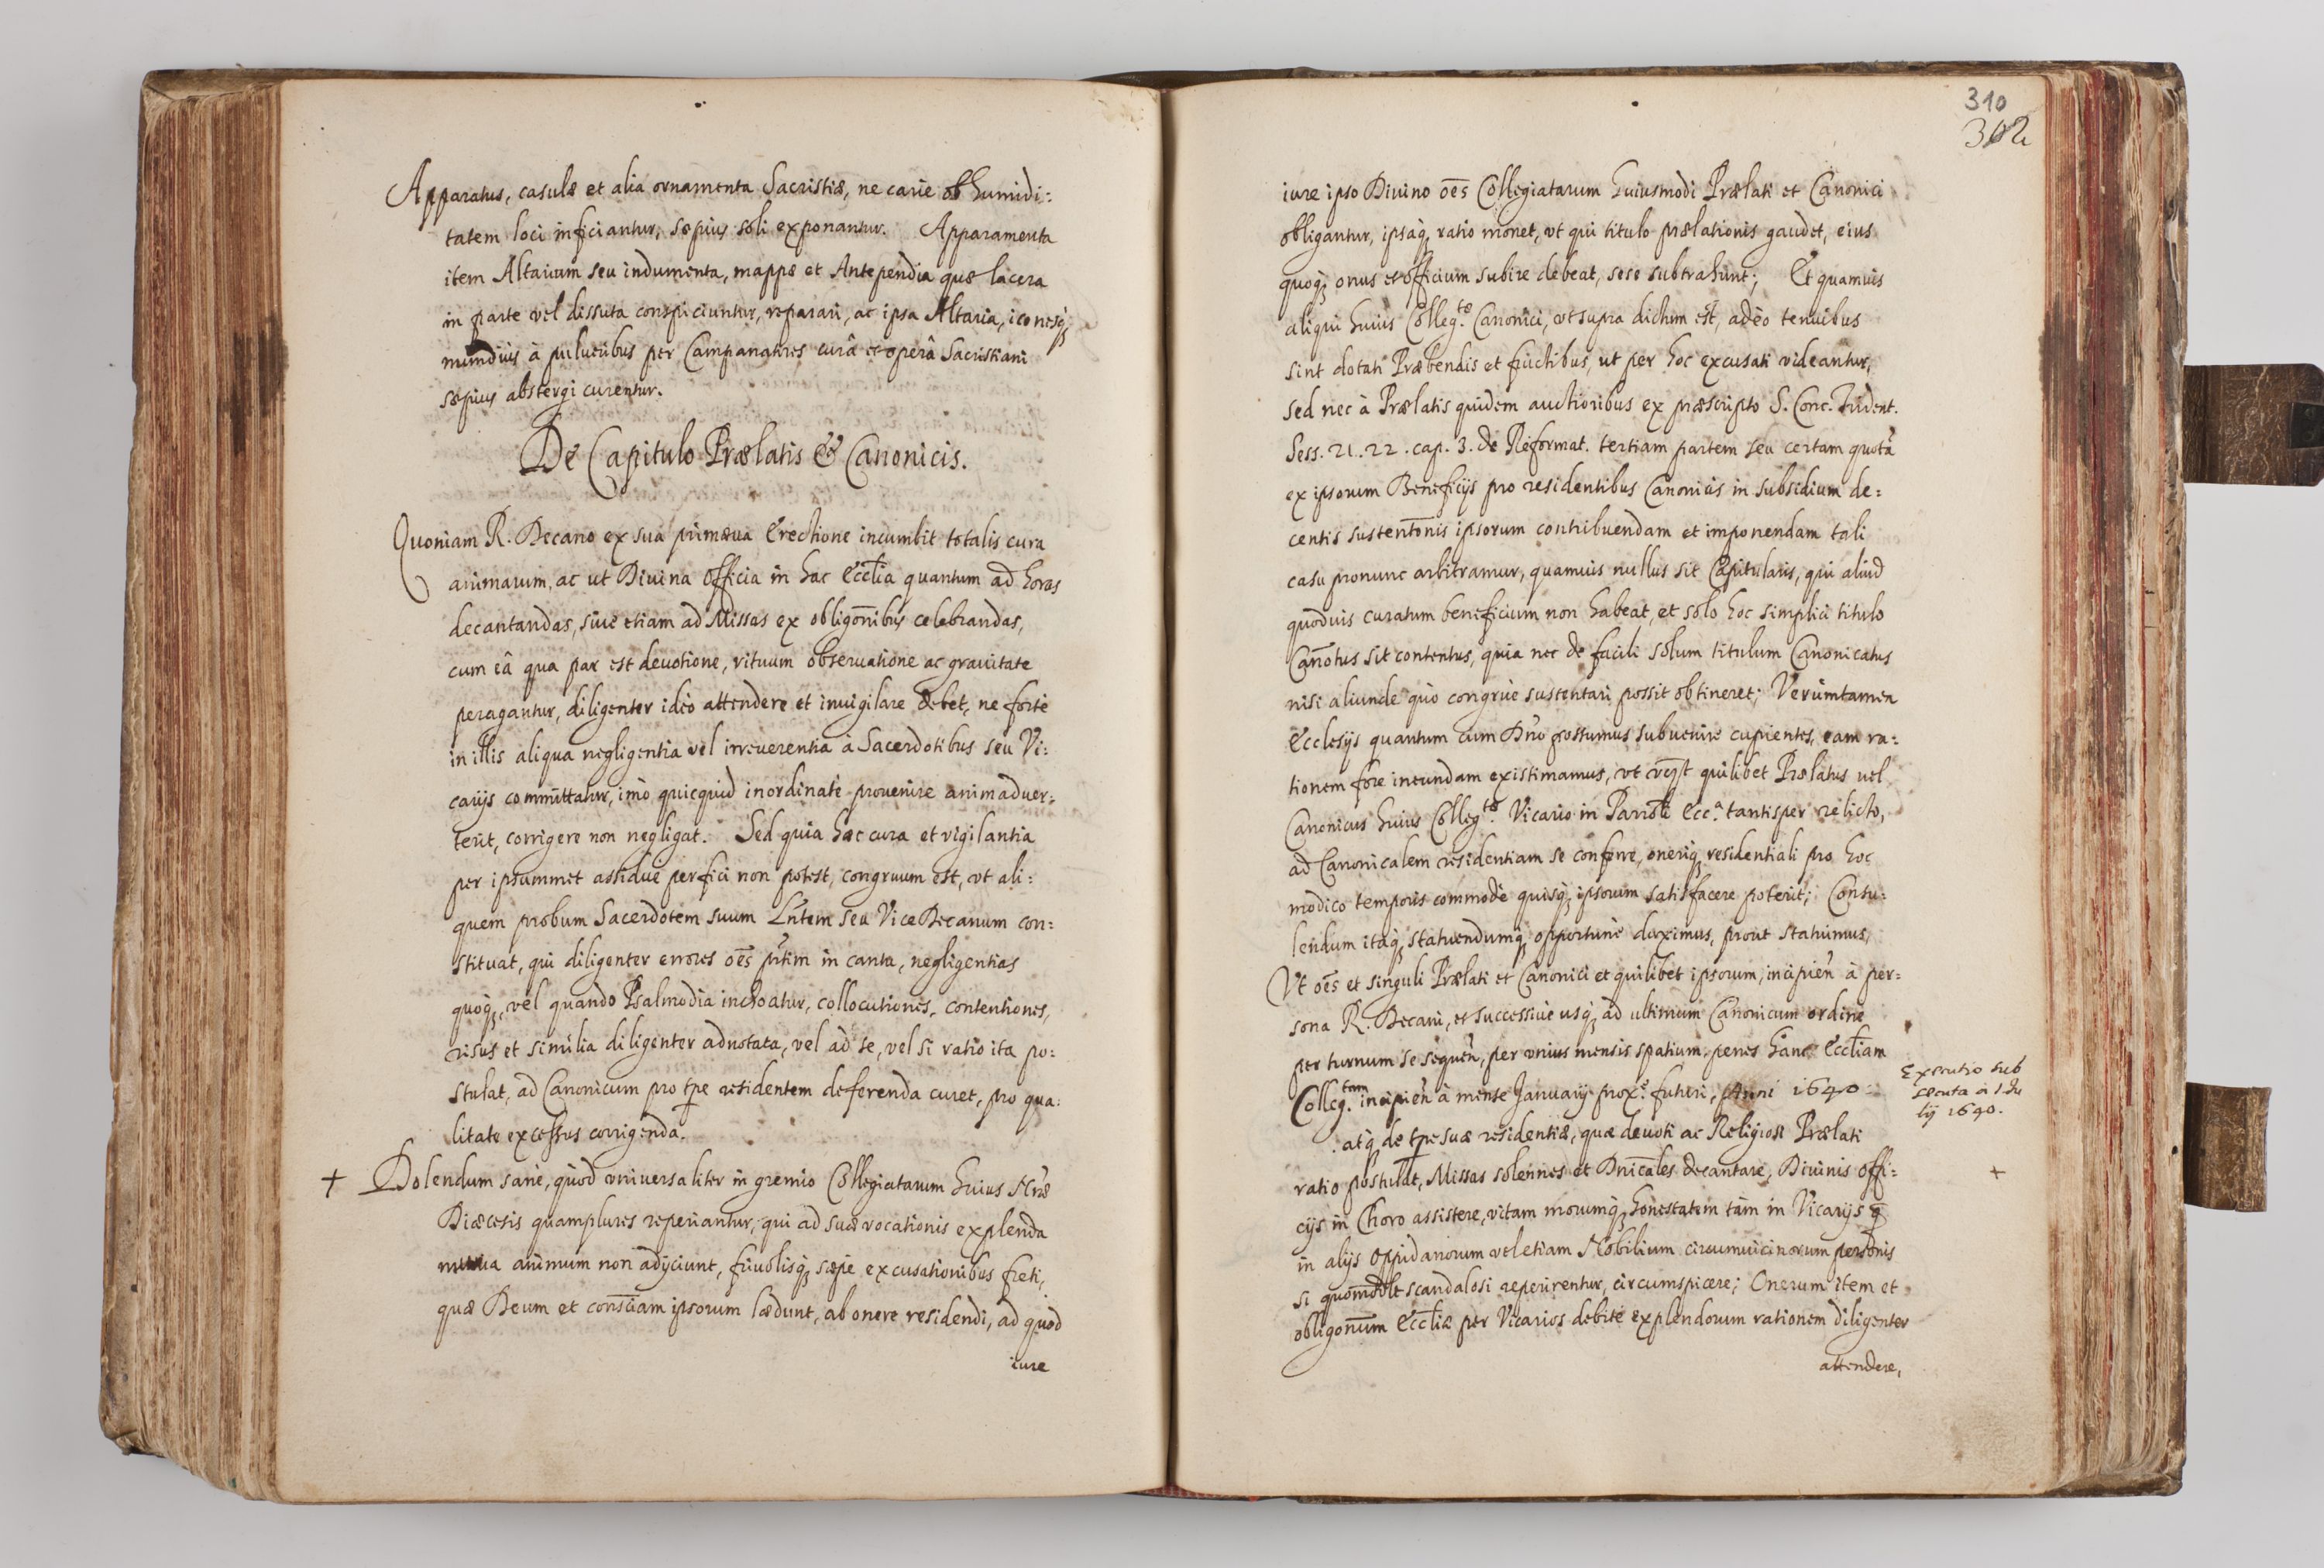 Apparatus, casulæ et alia ornamenta Sacristiæ, ne carie ob humidi:
tatem loci inficiantur, sæpius soli exponantur. Apparamenta
item Altarium seu indumenta, mappæ et Antependia quæ lacera
in parte vel dissuta conspiciuntur, reparari, ac ipsa Altaria, iconesq́;
mundius à pulueribus per Campanatores curâ et operâ Sacristiani
sæpius abstergi curentur.
De Capitulo Prælatis & Canonicis.
Quoniam R. Decano ex sua primæua Erectione incumbit totalis cura
animarum, ac ut Diuina Officia in hac Eccl̄ia quantum ad horas
decantandas, siue etiam ad Missas ex obligōnibus celebrandas,
cum eâ qua par est deuotione, rituum obseruatione ac grauitate
peragantur, diligenter ideo attendere et inuigilare debet, ne forte
in illis aliqua negligentia vel irreuerentia à Sacerdotibus seu Vi:
carijs committatur, imò quicquid inordinatè prouenire animaduer:
terit, corrigere non negligat. Sed quia hæc cura et vigilantia
per ipsummet assiduè perfici non potest, congruum est, vt ali:
quem probum Sacerdotem suum Lñtem seu ViceDecanum con:
stituat, qui diligenter errores oēs p̃tim in cantu, negligentias
quoq́;, vel quando Psalmodia inchoatur, collocutiones, contentiones,
risus et similia diligenter adnotata, vel ad se, vel si ratio ita po:
stulat, ad Canonicum pro tp̄e residentem deferenda curet, pro qua:
litate excessus corrigenda.
+ Dolendum sanè, quòd vniuersaliter in gremio Collegiatarum huius Nr̃æ
Diæcesis quamplures reperiantur, qui ad suæ vocationis explenda
munia animum non adijciunt, friuolisq́; sæpe excusationibus freti,
quæ Deum et consc̄iam ipsorum lædunt, ab onere residendi, ad quod
iure
310
302
iure ipso Diuino oēs Collegiatarum huiusmodi Prælati et Canonici
obligantur, ipsaq́; ratio monet, vt qui titulo prælationis gaudet, eius
quoq́; onus et officium subire debeat, sese subtrahunt; Et quamuis
aliqui huius Colleg.tæ Canonici, vt supra dictum est, adeò tenuibus
sint dotati Præbendis et fructibus, ut per hoc excusati videantur,
sed nec à Prælatis quidem auctioribus ex præscripto S. Conc. Trident.
Sess. 21. 22. cap. 3. de Reformat. tertiam partem seu certam quotã
ex ipsorum Beneficijs pro residentibus Canonicis in subsidium de:
centis sustentōnis ipsorum contribuendam et imponendam tali
casu pronunc arbitramur, quamuis nullus sit Capitularis, qui aliud
quoduis curatum beneficium non habeat, et solo hoc simplici titulo
Canōtus sit contentus, quia nec de facili solum titulum Canonicatus
nisi aliunde quo congruè sustentari possit obtineret; Verumtamen
Ecclesijs quantum cum Dño possumus subuenire cupientes, eam ra:
tionem fore ineundam existimamus, vt quilibet Prælatus vel
Canonicus huius Colleg.tæ Vicario in Parrōli Ecc.ᵃ tantisper relicto,
ad Canonicalem residentiam se conferre, oneriq́; residentiali pro hoc
modico temporis commodè quisq́; ipsorum satisfacere poterit; Consu:
lendum itaq́; statuendumq́; opportunè duximus, prout statuimus,
Vt oēs et singuli Prælati et Canonici et quilibet ipsorum, incipieñ à per:
sona R. Decani, et successiuè usq́; ad ultimum Canonicum ordine
per turnum se sequeñ, per vnius mensis spatium, penes hanc Eccl̄iam
Colleg.tam incipieñ à mense Januarij prox.e futuri, Anni 1640
Executio sub
secuta à 1. Iu
lij 1640.
atq́; de tp̄e suæ residentiæ, quæ deuoti ac Religiosi Prælati
ratio postulat, Missas solennes et Dn̄icales decantare, Diuinis offi:
+
cijs in Choro assistere, vitam morumq́; honestatem tàm in Vicarijs q̄
in alijs Oppidanorum vel etiam Nobilium circumuicinorum personis
si quomōlt scandalosi reperirentur, circumspicere; Onerum item et
obligonūm Eccl̄iæ per Vicarios debitè explendorum rationem diligenter
attendere,